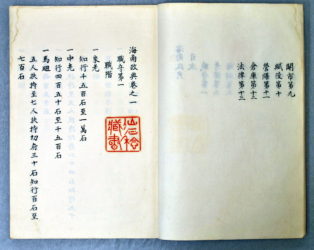 關市第九
賦役第十
營繕第十一
倉庫第十二
法律第十三
海南政典卷之一
職官第一
職階
一家老
知行千五百石至一萬石
一中老
知行四百五十石至千五百石
一馬廻
五人扶持至七人扶持切府三十石知行百石至
七百石
山谷
藏書